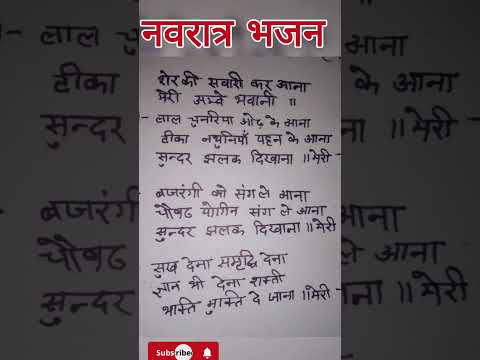 नवरात्र भजन
शेर की सवारी कर आना
मेरी अम्बे भवानी ॥
लाल चुनरिया ओढ़ के आना
टीका नथुनियाँ पहन के आना
सुन्दर झलक दिखाना ॥ मेरी -
बजरंगी को संग ले आना
चौसठ योगिन संग ले आना
सुन्दर झलक दिखाना ॥ मेरी
सुख देना समृद्धि देना
ज्ञान भी देना शक्ती
भक्ति मुक्ति दे जाना ॥ मेरी -
Subscribe